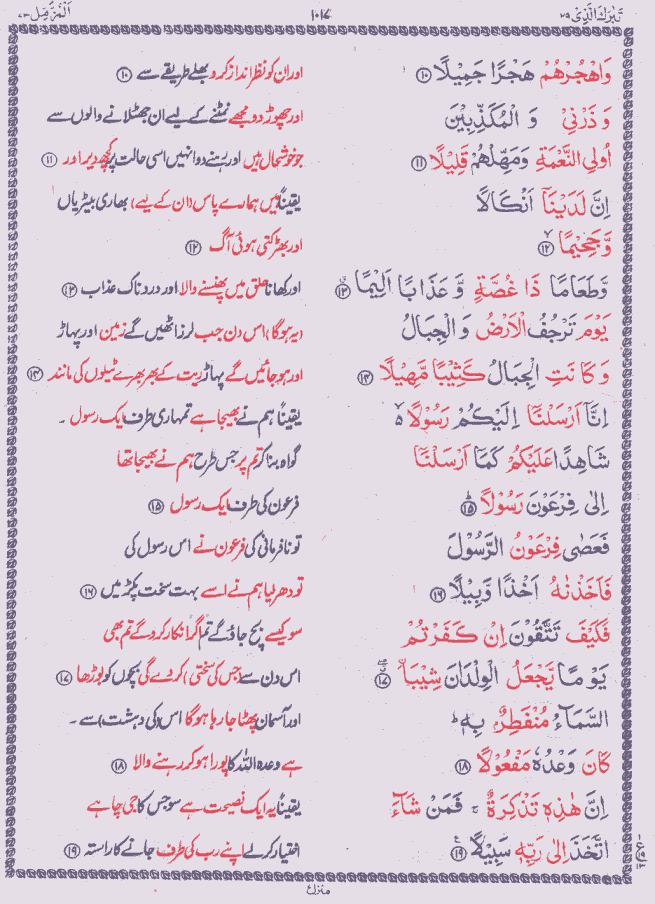 تَبٰرَكَ الَّذِیْ ۲۹ ۱۰۱۷ اَلْمُزَّمِّل ۷۳
وَاهْجُرْهُمْ هَجْرًا جَمِيْلًا ⑩ اور ان کو نظر انداز کرو بھلے طریقے سے ⑩
وَ ذَرْنِيْ وَ الْمُكَذِّبِيْنَ اور چھوڑ دو مجھے نمٹنے کے لیے ان جھٹلانے والوں سے
اُولِي النَّعْمَةِ وَمَهِّلْهُمْ قَلِيْلًا ⑪ جو خوشحال ہیں اور رہنے دو انہیں اسی حالت پر کچھ دیر اور ⑪
اِنَّ لَدَيْنَآ اَنْكَالًا یقیناً ہیں ہمارے پاس (ان کے لیے) بھاری بیڑیاں
وَّجَحِيْمًا ⑫ اور بھڑکتی ہوئی آگ ⑫
وَّطَعَامًا ذَا غُصَّةٍ وَّعَذَابًا اَلِيْمًا ⑬ اور کھانا حلق میں پھنسنے والا اور دردناک عذاب ⑬
يَوْمَ تَرْجُفُ الْاَرْضُ وَ الْجِبَالُ (یہ ہوگا) اس دن جب لرز اٹھیں گے زمین اور پہاڑ
وَ كَانَتِ الْجِبَالُ كَثِيْبًا مَّهِيْلًا ⑭ اور ہو جائیں گے پہاڑ ریت کے بھربھرے ٹیلوں کی مانند ⑭
اِنَّآ اَرْسَلْنَآ اِلَيْكُمْ رَسُوْلًا ۙ یقیناً ہم نے بھیجا ہے تمہاری طرف ایک رسول ۔
شَاهِدًا عَلَيْكُمْ كَمَآ اَرْسَلْنَآ گواہ بنا کر تم پر جس طرح ہم نے بھیجا تھا
اِلٰى فِرْعَوْنَ رَسُوْلًا ⑮ فرعون کی طرف ایک رسول ⑮
فَعَصٰى فِرْعَوْنُ الرَّسُوْلَ تو نافرمانی کی فرعون نے اس رسول کی
فَاَخَذْنٰهُ اَخْذًا وَّبِيْلًا ⑯ تو دھر لیا ہم نے اسے بہت سخت پکڑ میں ⑯
فَكَيْفَ تَتَّقُوْنَ اِنْ كَفَرْتُمْ سو کیسے بچ جاؤ گے تم اگر انکار کرو گے تم بھی
يَوْمًا يَّجْعَلُ الْوِلْدَانَ شِيْبَا ⑰ اس دن سے (جس کی سختی) کر دے گی بچوں کو بوڑھا ⑰
السَّمَآءُ مُنْفَطِرٌۢ بِهٖ ؕ اور آسمان پھٹا جا رہا ہوگا اس (کی دہشت) سے ۔
كَانَ وَعْدُهٗ مَفْعُوْلًا ⑱ ہے وعدہ اللہ کا پورا ہو کر رہنے والا ⑱
اِنَّ هٰذِهٖ تَذْكِرَةٌ ۚ فَمَنْ شَآءَ یقیناً یہ ایک نصیحت ہے سو جس کا جی چاہے
اتَّخَذَ اِلٰى رَبِّهٖ سَبِيْلًا ⑲ اختیار کر لے اپنے رب کی طرف جانے کا راستہ ⑲
منزل ۷